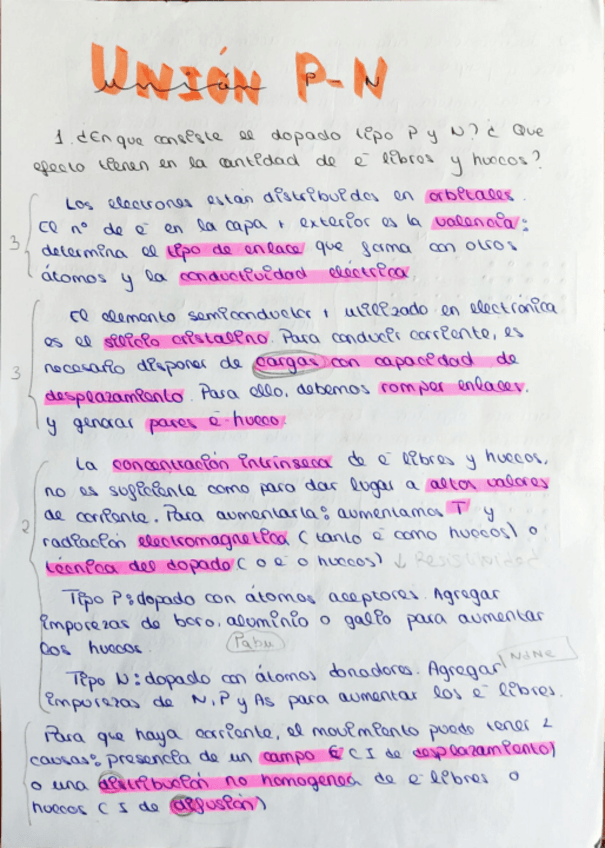 UNIÓN P-N
unión P N
1. ¿En que consiste el dopado tipo P y N? ¿Que
efecto tienen en la cantidad de e⁻ libres y huecos?
Los electrones están distribuidos en orbitales.
El nº de e⁻ en la capa + exterior es la valencia:
3
determina el tipo de enlace que forma con otros
átomos y la conductividad eléctrica
El elemento semiconductor + utilizado en electrónica
es el silicio cristalino. Para conducir corriente, es
3
necesario disponer de cargas con capacidad de
desplazamiento. Para ello, debemos romper enlaces.
y generar pares e⁻-hueco.
La concentración intrínseca de e⁻ libres y huecos,
no es suficiente como para dar lugar a altos valores
de corriente. Para aumentarla: aumentamos T y
2
radiación electromagnetica (tanto e⁻ como huecos) o
técnica del dopado (o e⁻ o huecos) ↓ Resistividad
Tipo P: dopado con átomos aceptores. Agregar
impurezas de boro, aluminio o galio para aumentar
los huecos.
Pabu
NdNe
Tipo N: dopado con átomos donadores. Agregar
impurezas de N, P y As para aumentar los e⁻ libres.
Para que haya corriente, el movimiento puede tener 2
causas: presencia de un campo E (I de desplazamiento)
o una distribución no homogenea de e⁻ libres o
huecos (I de difusión)